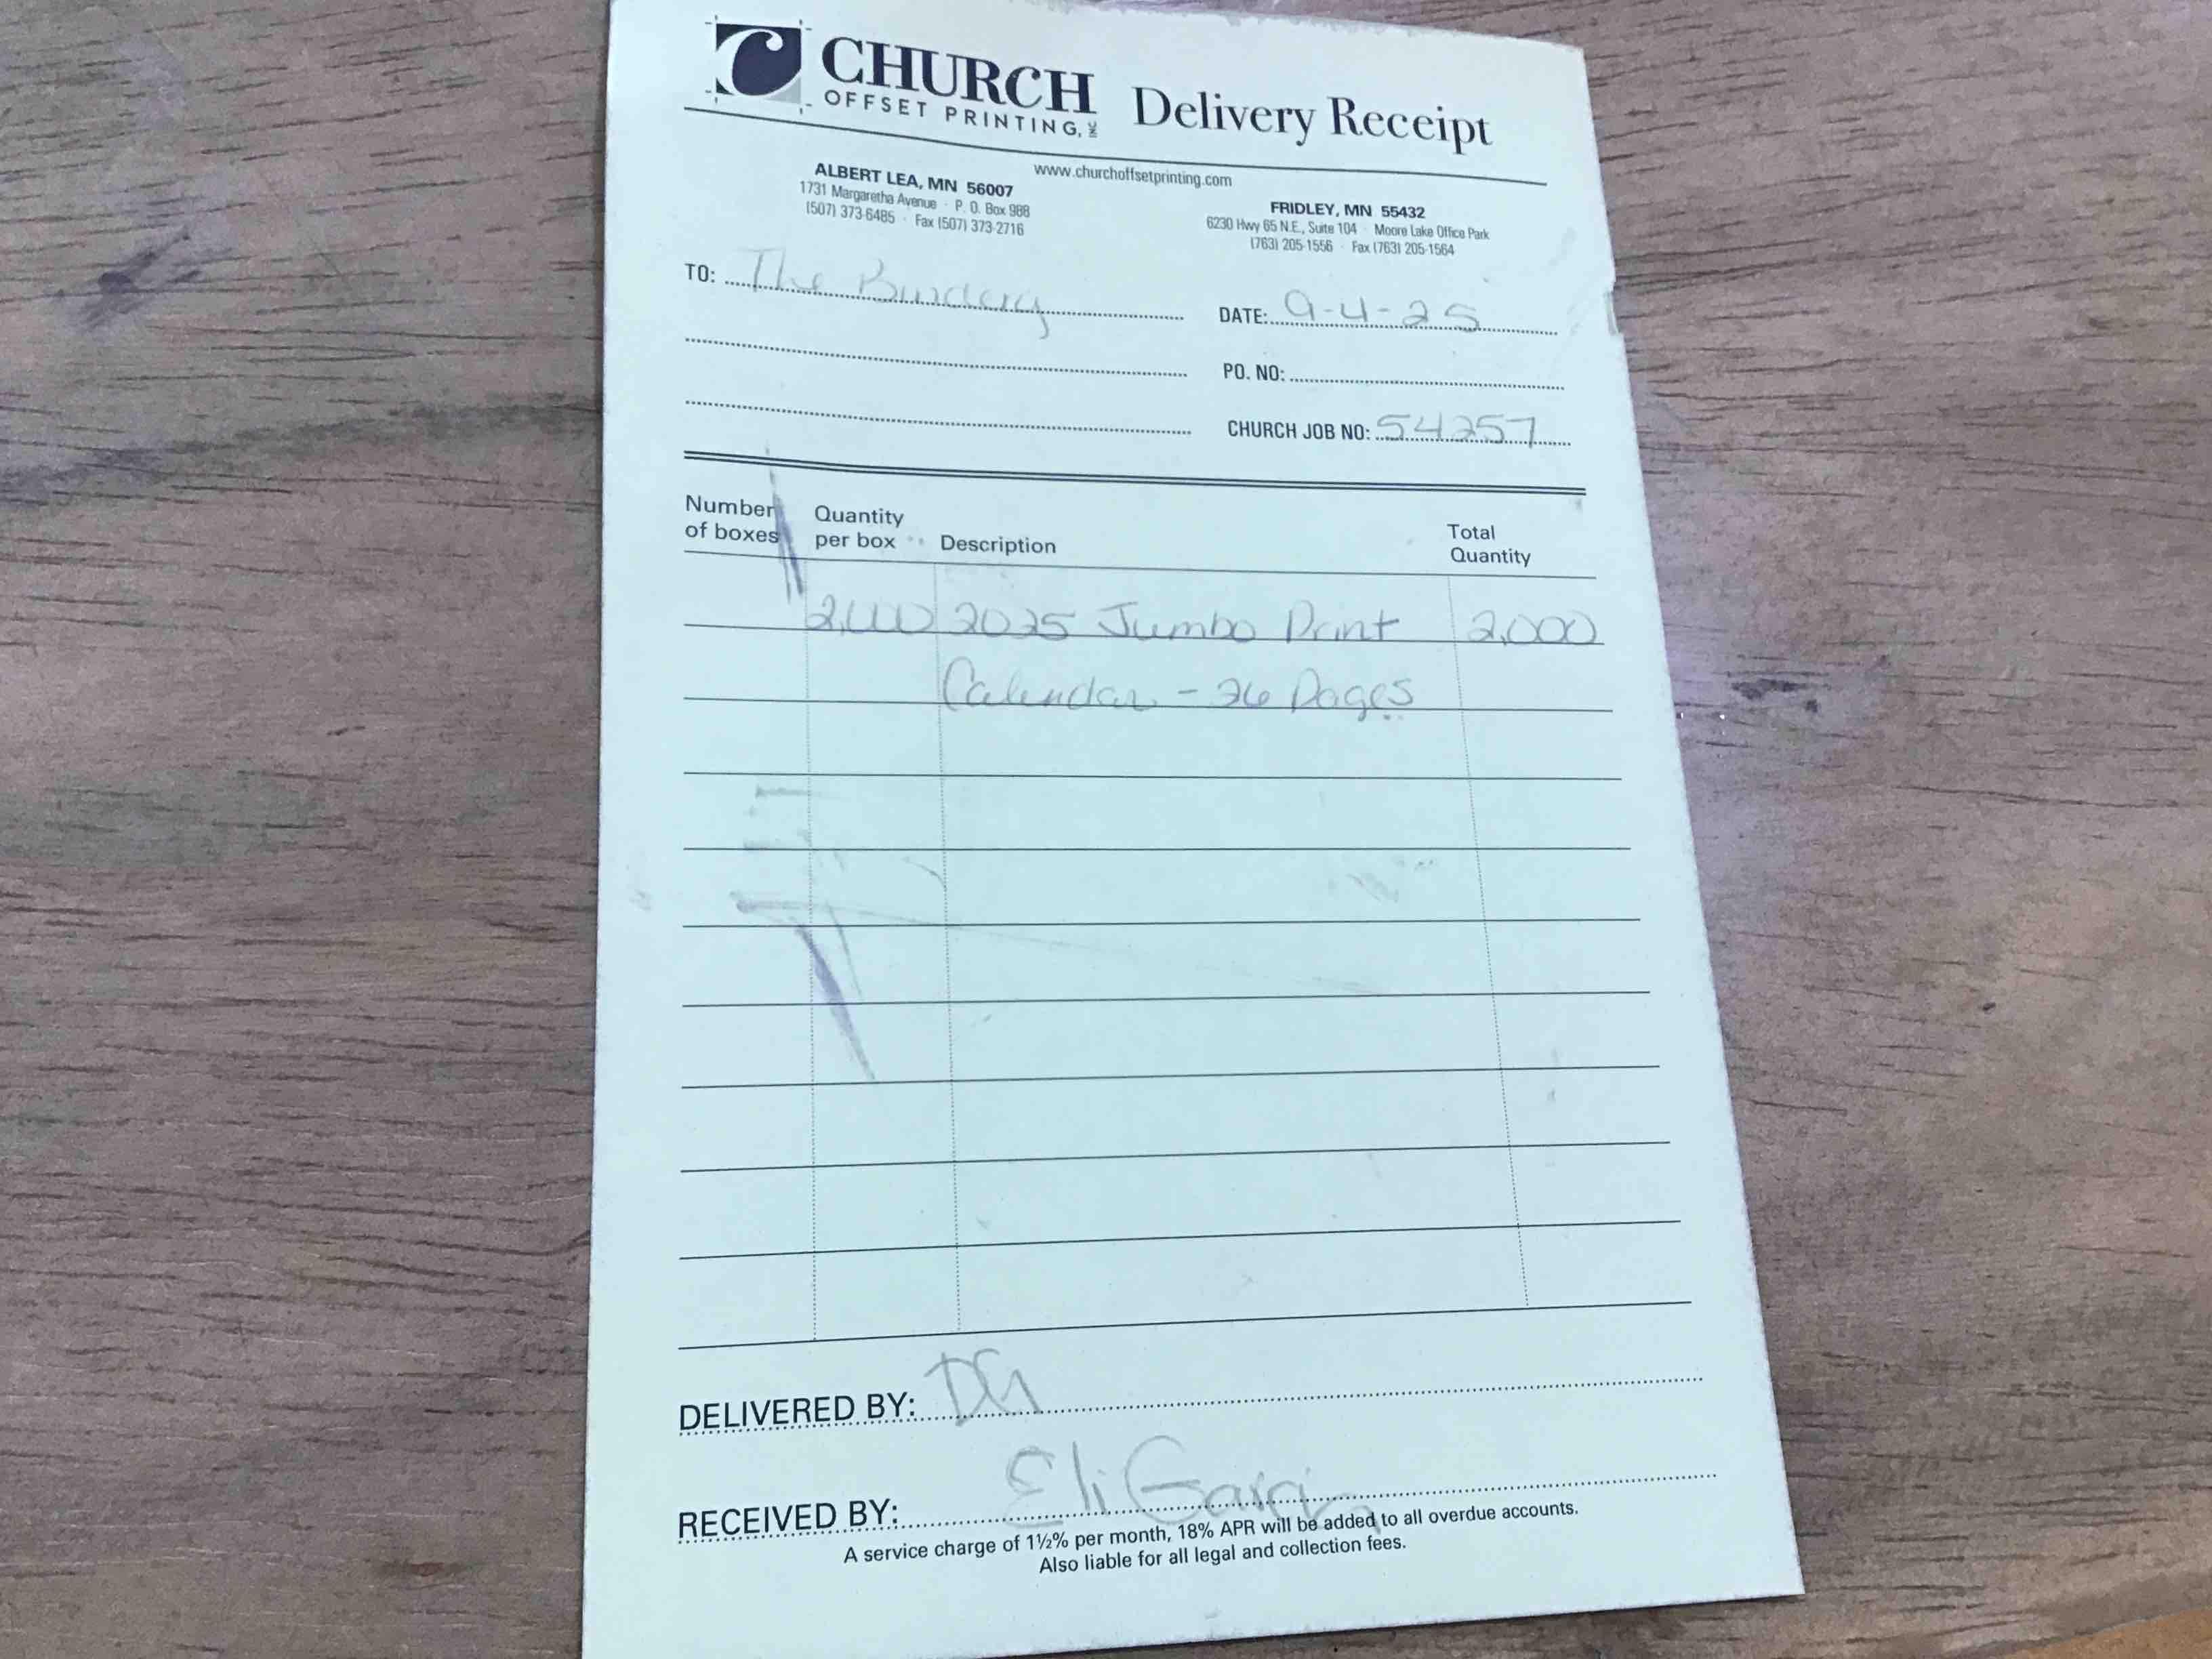 CHURCH
OFFSET PRINTING, INC
Delivery Receipt
www.churchoffsetprinting.com
ALBERT LEA, MN 56007
1731 Margaretha Avenue · P. O. Box 988
(507) 373-6485 · Fax (507) 373-2716
FRIDLEY, MN 55432
6230 Hwy 65 N.E., Suite 104 · Moore Lake Office Park
(763) 205-1556 · Fax (763) 205-1564
TO: The Bindery
DATE: 9-4-25
PO. NO:
CHURCH JOB NO: 54257
Number of boxes
Quantity per box
Description
Total Quantity
2,000 2025 Jumbo Print 2,000
Calendar - 26 Pages
DELIVERED BY:
RECEIVED BY: Eli Garcia
A service charge of 1½% per month, 18% APR will be added to all overdue accounts.
Also liable for all legal and collection fees.